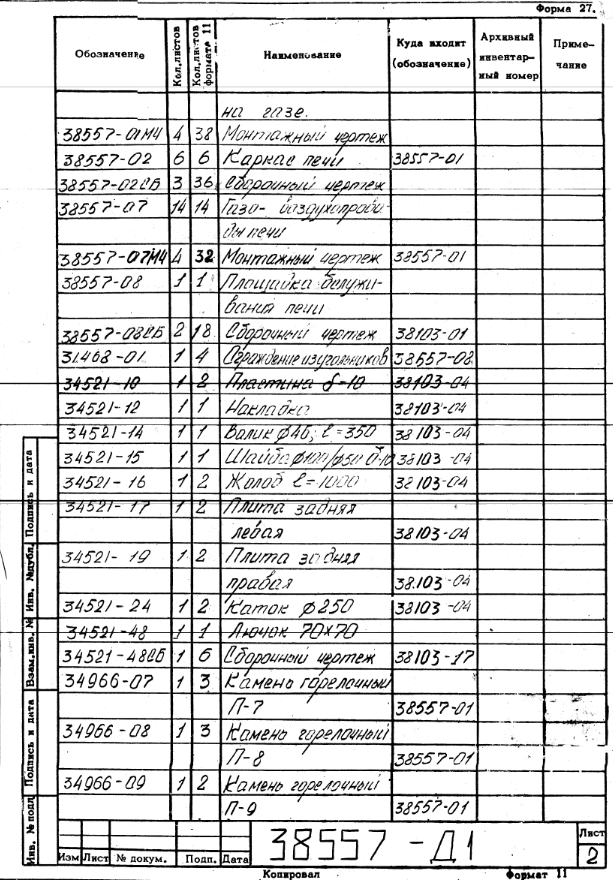 Форма 27.
Обозначение Кол.листов Кол.листов формата 11 Наименование Куда входит (обозначение) Архивный инвентар-ный номер Приме-чание
на газе.
38557-01МЧ 4 38 Монтажный чертеж
38557-02 6 6 Каркас печи 38557-01
38557-02СБ 3 36 Сборочный чертеж
38557-07 14 14 Газо- воздухопрово-
ды печи
38557-07МЧ 4 32 Монтажный чертеж 38557-01
38557-08 1 1 Площадка обслужи-
вания печи
38557-08СБ 2 18 Сборочный чертеж 38103-01
31468-01 1 4 Ограждение из угольников 38557-08
34521-10 1 2 Пластина δ=10 38103-04
34521-12 1 1 Накладка 38103-04
34521-14 1 1 Валик ф46; ℓ=350 38103-04
34521-15 1 1 Шайба ф100/ф50 δ-10 38103-04
34521-16 1 2 Жолоб ℓ=1000 38103-04
34521-17 1 2 Плита задняя
левая 38103-04
34521-19 1 2 Плита задняя
правая 38103-04
34521-24 1 2 Каток ф250 38103-04
34521-48 1 1 Лючок 70×70
34521-48СБ 1 6 Сборочный чертеж 38103-17
34966-07 1 3 Камень горелочный
П-7 38557-01
34966-08 1 3 Камень горелочный
П-8 38557-01
34966-09 1 2 Камень горелочный
П-9 38557-01
Подпись и дата
Инв. №дубл.
Взам.инв. №
Подпись и дата
Инв. № подл
38557-Д1
Лист
2
Изм Лист № докум. Подп. Дата
Копировал Формат 11